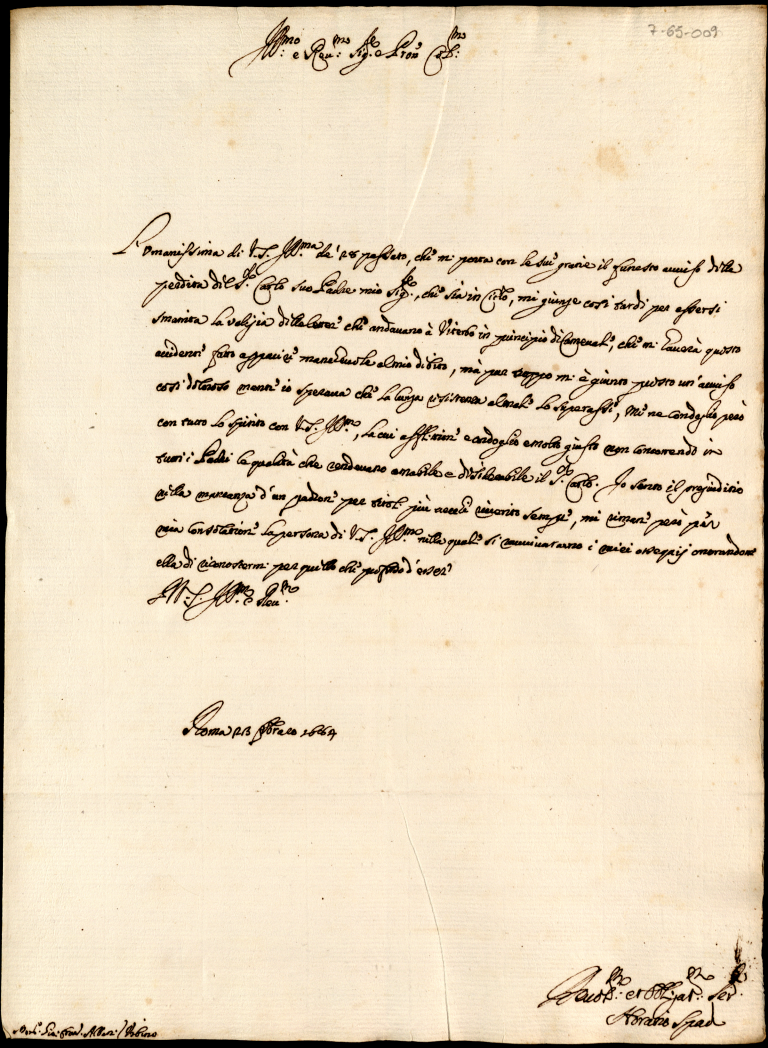 7-65-009
Ill.mo e Reu.mo Sig.re e Pron Col.mo
L'omanissima di V.S. Ill.ma de' 28 passato, che mi porta con le sue gratie il funesto auuiso della
perdita del S.r Carlo suo Padre mio Sig.re, che sia in Cielo, mi giunse così tardi per essersi
smarrita la valigia delle lettere che andauano à Viterbo in principio di Carneuale, che mi hauerà questo
accidente fatto apparire mancheuole al mio debito, mà pur troppo mi è giunto questo un' auuiso
così doloroso mentre io speraua che la lunga resistenza al male lo superasse, Me ne condoglio però
con tutto lo spirito con V.S. Ill.ma, la cui afflittione e cordoglio è molto giusto non concorrendo in
tutti i Padri le qualità che rendeuano amabile e desiderabile il S.r Carlo. Io sento il pregiuditio
nella mancanza d'un padrone per titoli più receuti riuerito sempre, mi rimane però per
mia consolatione la persona di V.S. Ill.ma nella quale si rauuiuaranno i miei ossequij onorandomi
ella di riconoscermi per quello che professo d'essere
Di V.S. Ill.ma e Reu.ma
Roma 23 febraro 1664
Deuot.mo et Obligat.mo Ser.re
Horatio Spada
Albani Urbino